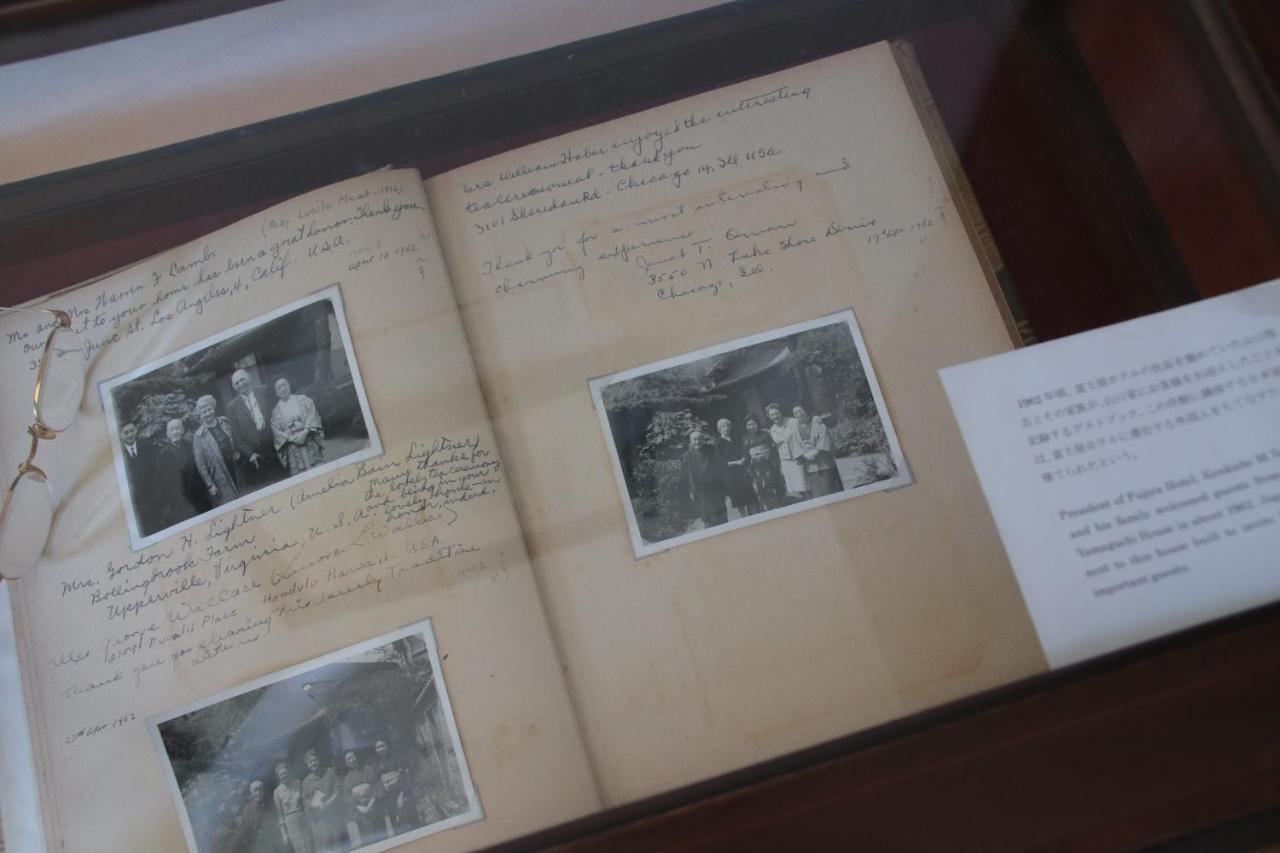 (Ruby Lucile Mead - 1916)
Mr and Mrs Warren F Lamb.
Our visit to your home has been a great honor. Thank you.
June St. Los Angeles, 4, Calif. U.S.A.
April 16 1962
Mrs. Gordon H. Lightner (Amelia Bain Lightner)
Bollingbrook Farm
Upperville, Virginia, U.S.A.
Many thanks for
the lovely tea ceremony
and being in your
lovely home - an
honor, indeed.
Mrs George Wallace (Lenore L Wallace)
Puualii Place Honolulu Hawaii - U.S.A.
Thank you for sharing this lovely tradition
with us.
27th Apr. 1962
Mrs William Haber enjoyed the interesting
tea ceremonial - thank you
3101 Sheridan Rd - Chicago 14, Ill USA.
Thank you for a most interesting and
charming experience.
Janet T.
3550 N Lake Shore Drive
Chicago, Ill.
17th Apr. 1962
1962 年頃、富士屋ホテルの社長を務めていた山口
おとその家族が、山口家にお客様をお迎えしたことを
記録するゲストブック。この洋館に隣接する日本家
は、富士屋ホテルに滞在する外国人をもてなすた
建てられたという。
President of Fujiya Hotel, Kenkichi M.
and his family welcomed guests from
Yamaguchi House in about 1962.
next to this house built to invite
important guests.